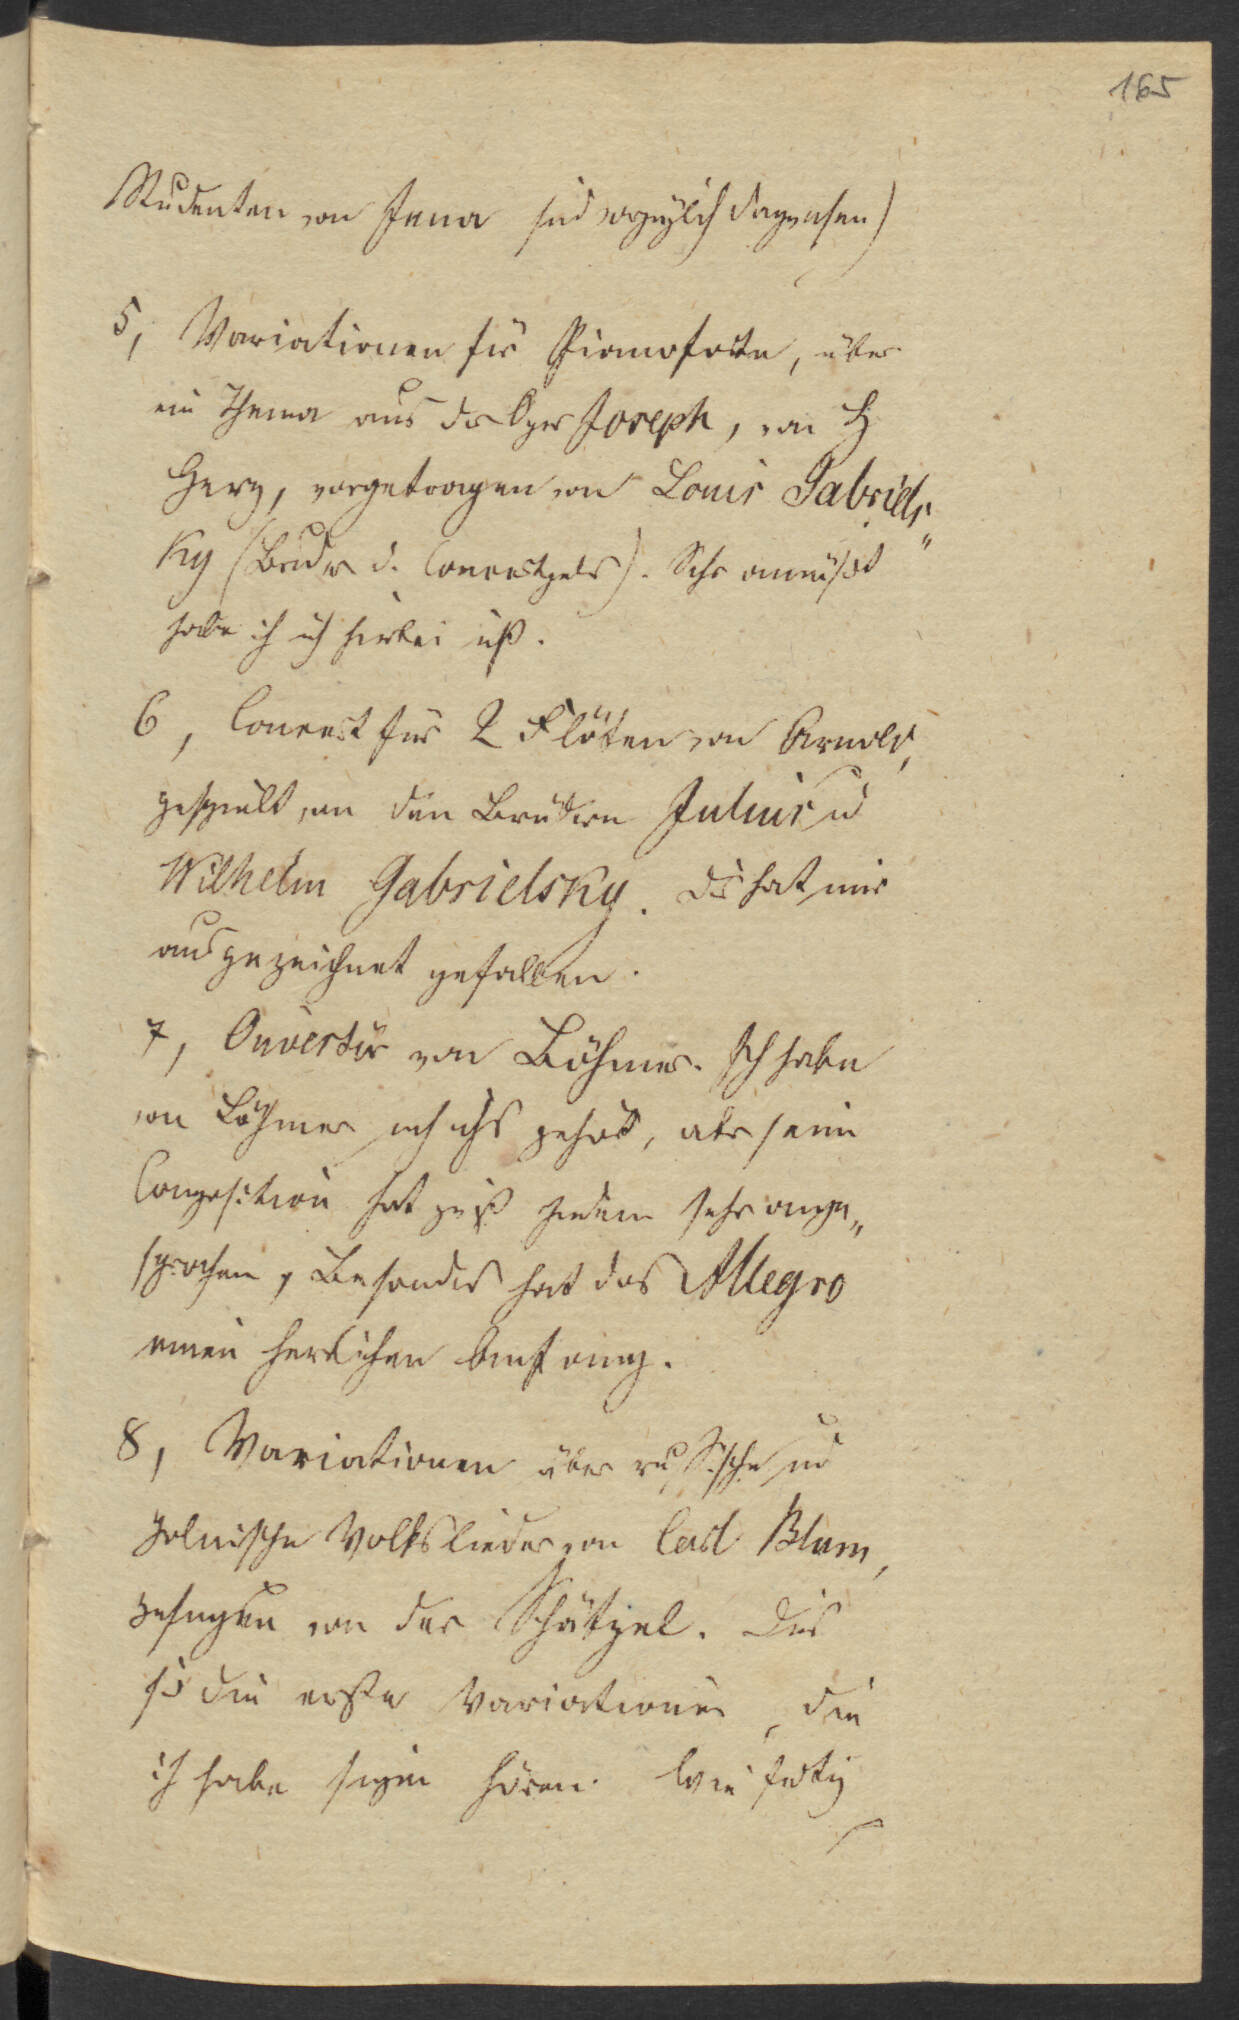 165
Studenten von Jena sind vorzüglich dagewesen)
5, Variationen für Pianoforte, über
ein Thema aus der Oper Joseph, von H
Herz, vorgetragen von Louis Gabriels„
ky (Bruder d. Concertgebers). Sehr amüsirt
habe ich mich hierbei nicht.
6, Concert für 2 Flöten von Arnold,
gespielt von den Brüdern Julius u
Wilhelm Gabrielsky. Dies hat mir
ausgezeichnet gefallen.
7, Ouvertür von Böhmer. Ich habe
von Böhmer noch nichts gehört, aber seine
Composition hat gewiß jedem sehr ange„
sprochen, Besonders hat das Allegro
einen herrlichen Anfang.
8, Variationen über russische und
polnische Volkslieder von Carl Blum,
gesungen von der Schätzel. Dies
sind die ersten Variationen, die
ich habe singen hören. Wie fertig